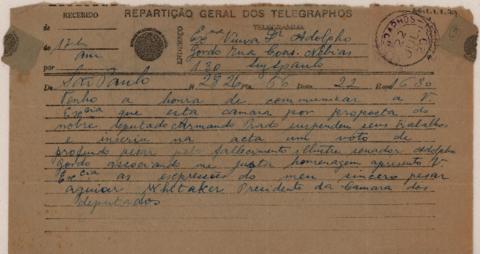 RECEBIDO
REPARTIÇÃO GERAL DOS TELEGRAPHOS
TELEGRAMMA
de
Exma Viuva Dr Adolpho
Gordo Rua Cons. Nebias
130 S. Paulo
ENDEREÇO
de
por
De São Paulo N 2926 Pls 66 Data 22 Hora 1630
Tenho a honra de communicar a V.
Excia que esta camara por proposta do
nobre deputado Armando Prado suspendeu seus trabalhos
inseriu na acta um voto de
profundo pezar pelo fallecimento illustre senador Adolpho
Gordo associando me justa homenagem apresento V.
Excia as expressões do meu sincero pesar
Aguiar Whitaker Presidente da Camara dos
deputados